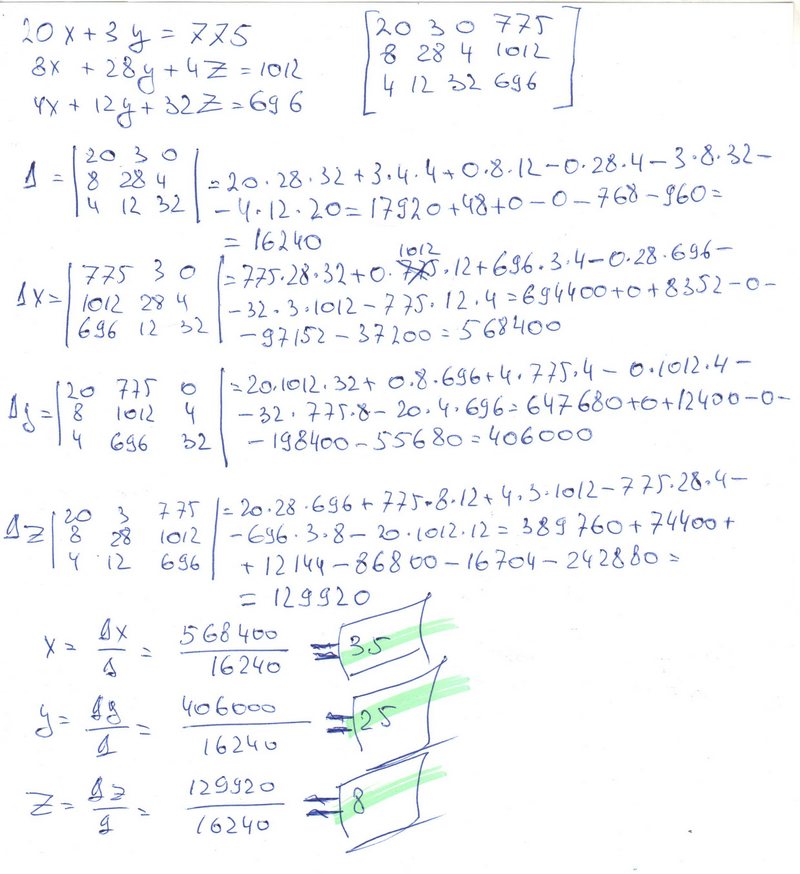 20x + 3y = 775
8x + 28y + 4z = 1012
4x + 12y + 32z = 696
[ 20 3 0 775
8 28 4 1012
4 12 32 696 ]
Δ = | 20 3 0
8 28 4
4 12 32 | = 20·28·32 + 3·4·4 + 0·8·12 − 0·28·4 − 3·8·32 −
− 4·12·20 = 17920 + 48 + 0 − 0 − 768 − 960 =
= 16240
Δx = | 775 3 0
1012 28 4
696 12 32 | = 775·28·32 + 0·1012·12 + 696·3·4 − 0·28·696 −
− 32·3·1012 − 775·12·4 = 694400 + 0 + 8352 − 0 −
− 97152 − 37200 = 568400
Δy = | 20 775 0
8 1012 4
4 696 32 | = 20·1012·32 + 0·8·696 + 4·775·4 − 0·1012·4 −
− 32·775·8 − 20·4·696 = 647680 + 0 + 12400 − 0 −
− 198400 − 55680 = 406000
Δz | 20 3 775
8 28 1012
4 12 696 | = 20·28·696 + 775·8·12 + 4·3·1012 − 775·28·4 −
− 696·3·8 − 20·1012·12 = 389760 + 74400 +
+ 12144 − 86800 − 16704 − 242880 =
= 129920
x = Δx/Δ = 568400/16240 = 35
y = Δy/Δ = 406000/16240 = 25
z = Δz/Δ = 129920/16240 = 8